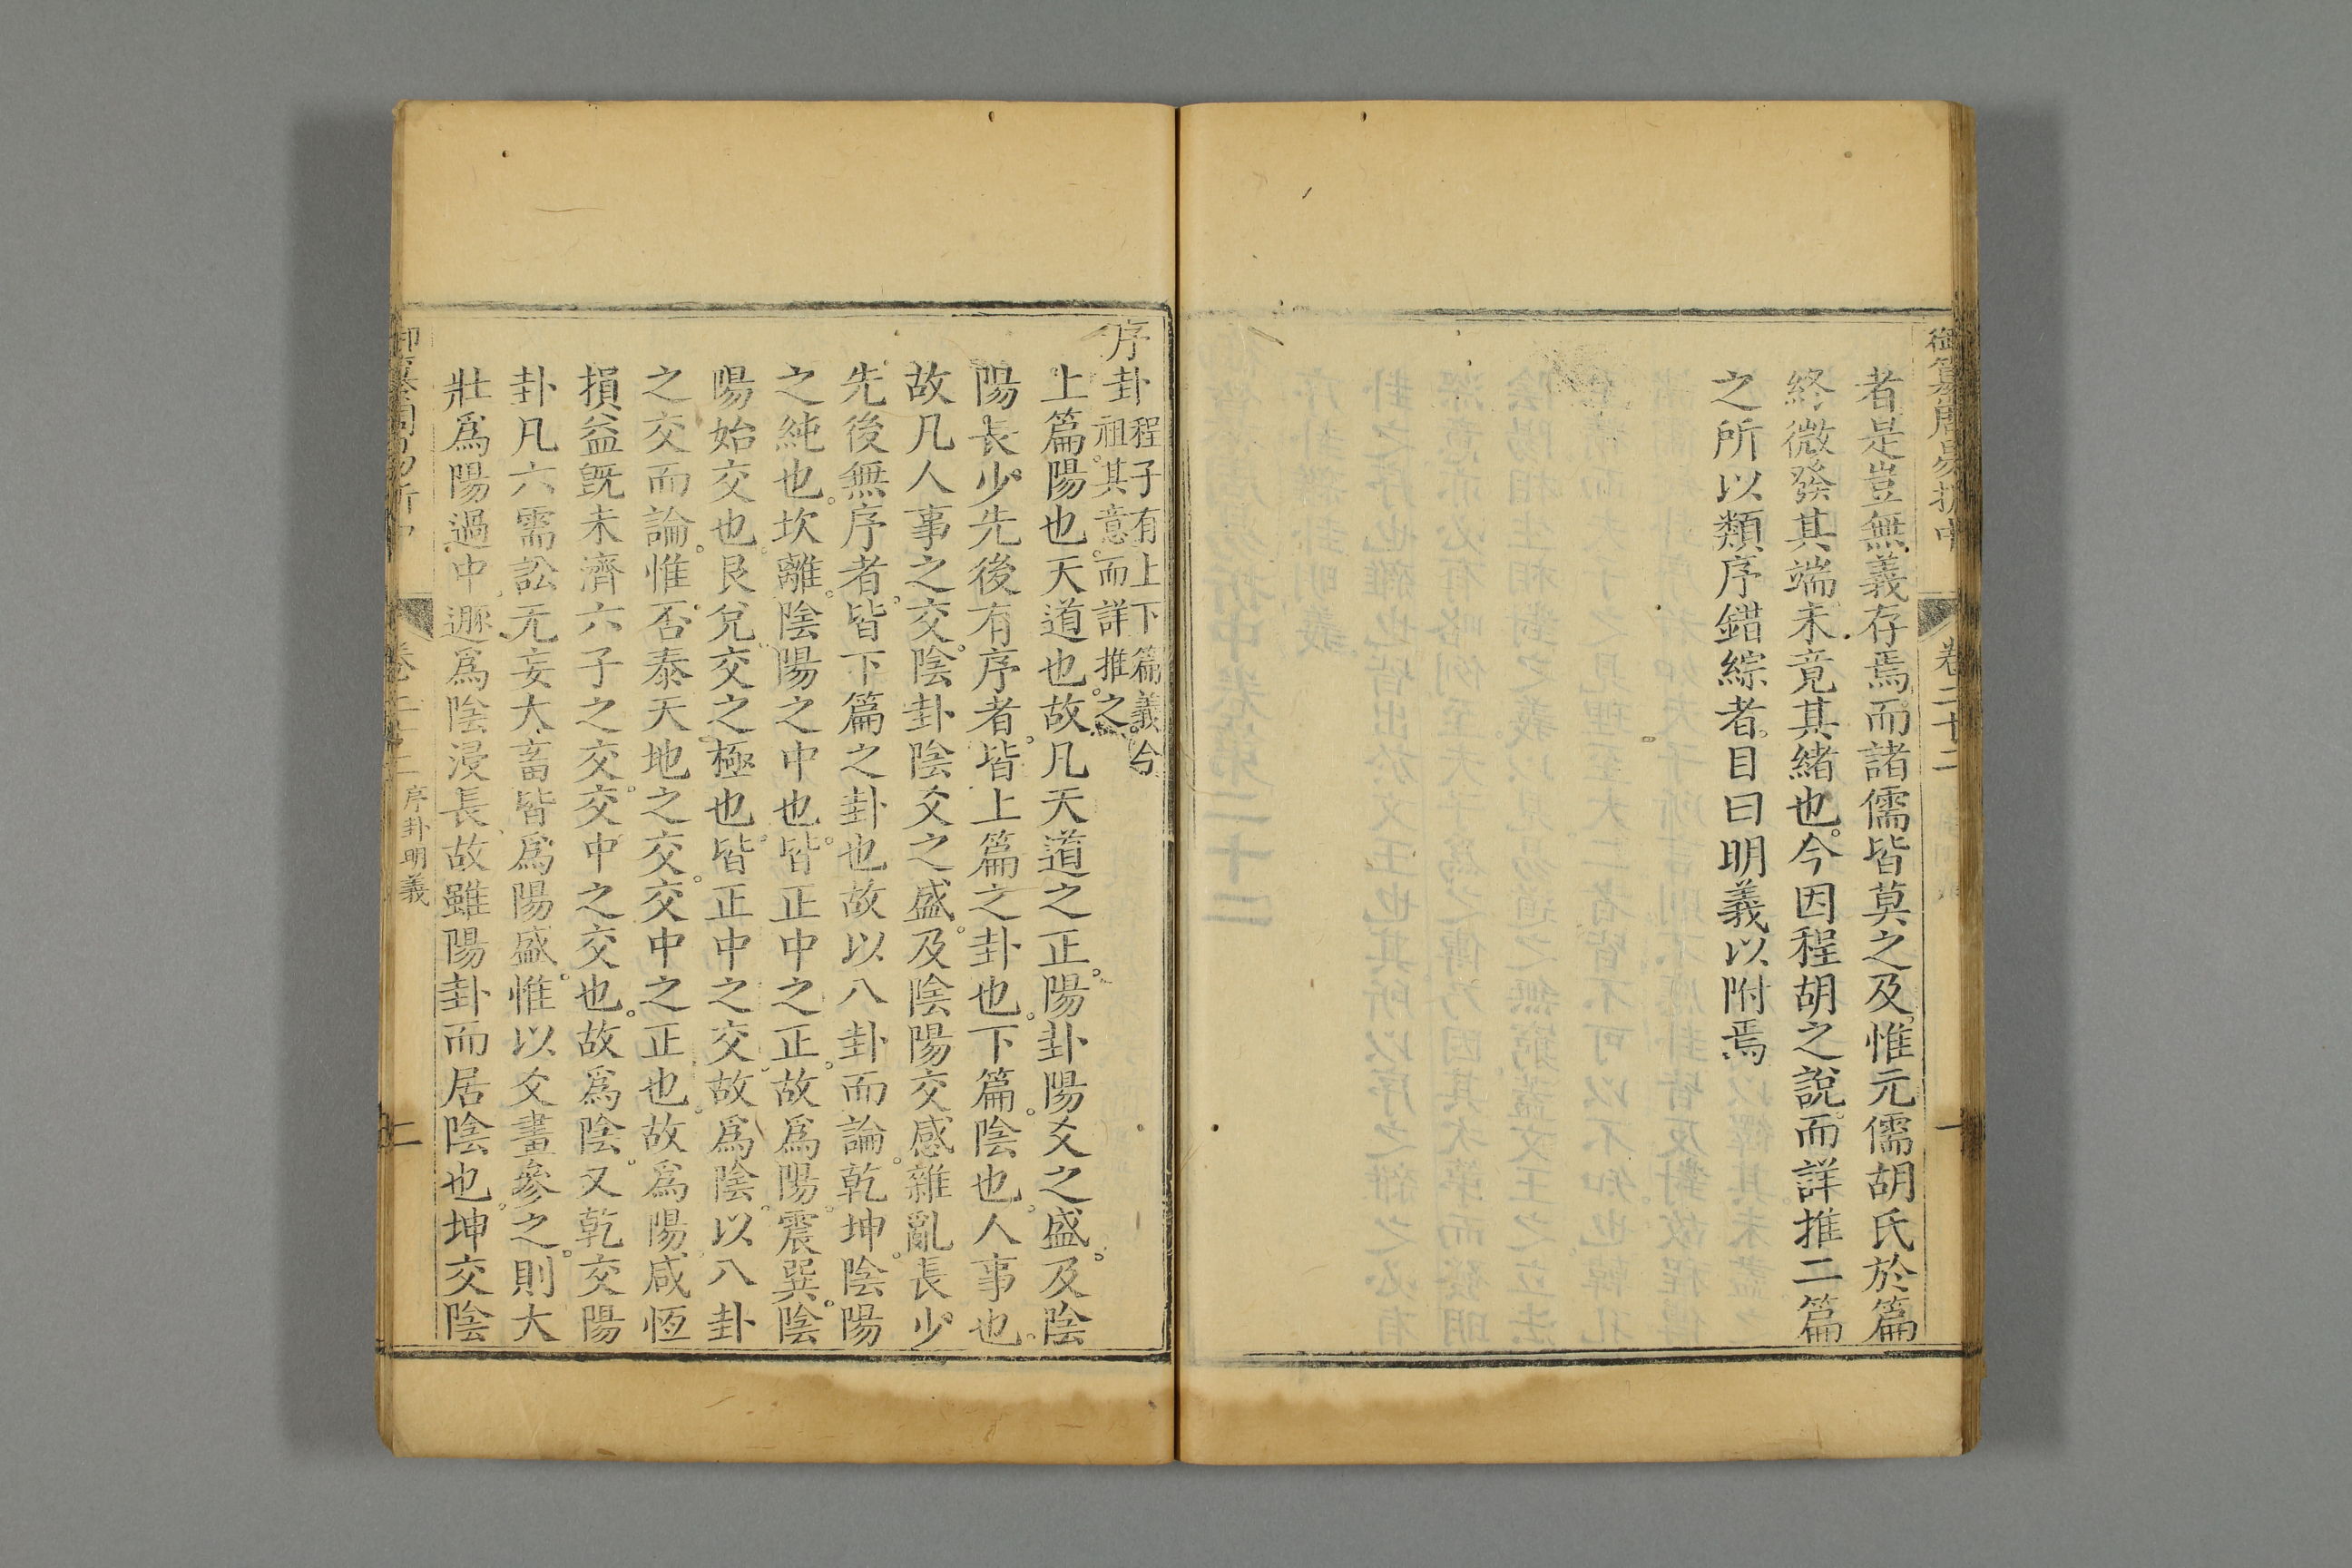 御纂周易折中
卷二十二
一
者是豈無義存焉而諸儒皆莫之及惟元儒胡氏於篇
終微發其端未竟其緒也今因程胡之說而詳推二篇
之所以類序錯綜者目曰明義以附焉
序卦
程子有上下篇義今
祖其意而詳推之
上篇陽也天道也故凡天道之正陽卦陽爻之盛及陰
陽長少先後有序者皆上篇之卦也下篇陰也人事也
故凡人事之交陰卦陰爻之盛及陰陽交感雜亂長少
先後無序者皆下篇之卦也故以八卦而論乾坤陰陽
之純也坎離陰陽之中也皆正中之正故為陽震巽陰
陽始交也艮兌交之極也皆正中之交故為陰以八卦
之交而論惟否泰天地之交交中之正也故為陽咸恆
損益旣未濟六子之交交中之交也故為陰又乾交陽
卦凡六需訟无妄大畜皆為陽盛惟以爻畫參之則大
壯為陽過中遯為陰浸長故雖陽卦而居陰也坤交陰
御纂周易折中
卷二十二
序卦明義
二